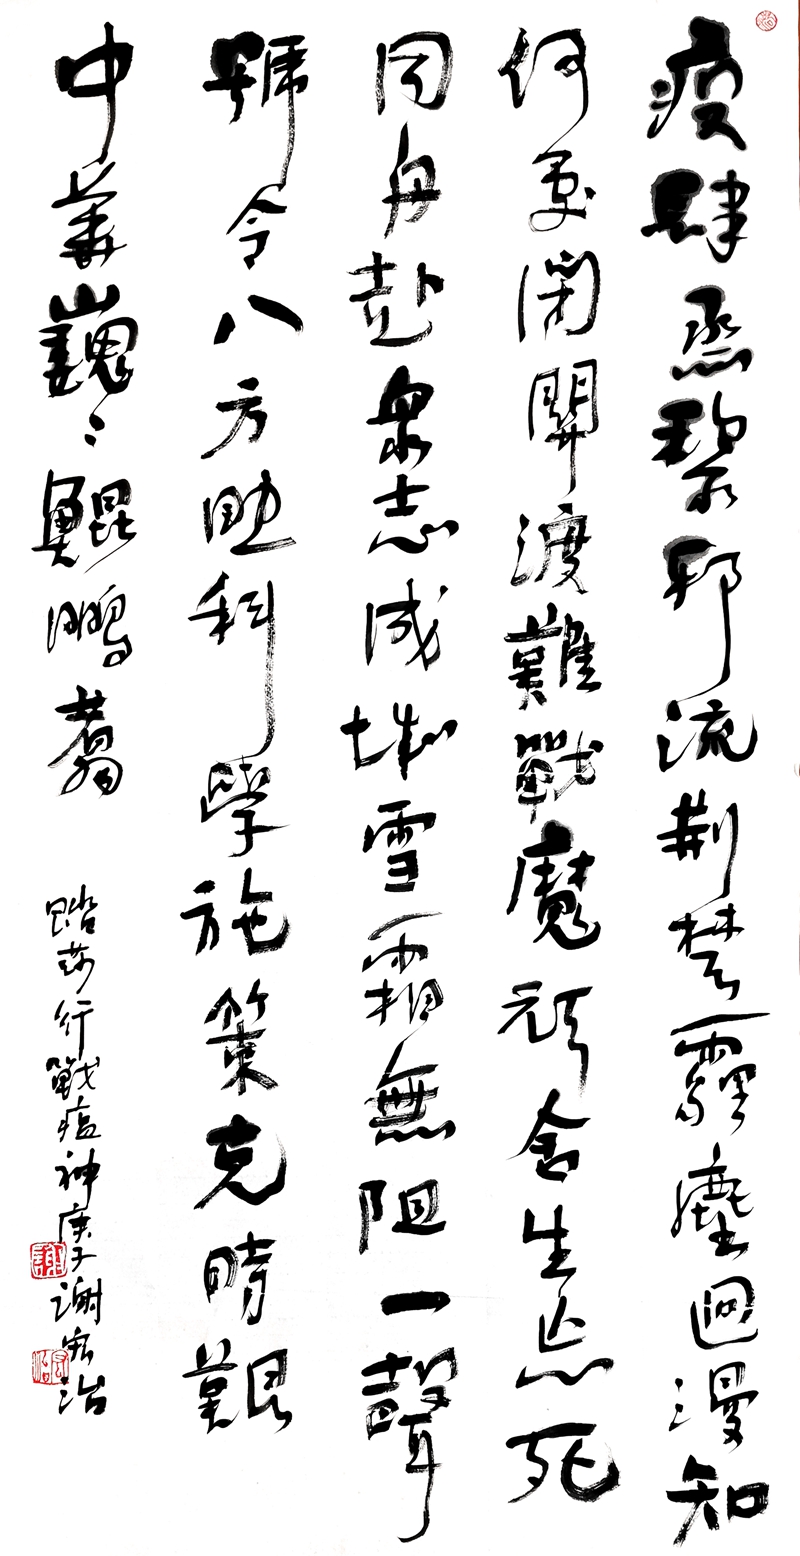 疫肆烝黎邪流荆楚霾塵迴漫知
何處閉關渡難戰魔頑舍生忘死
同舟赴眾志成城雪霜無阻一聲
號令八方助科學施策克時艱
中華巍〻鯤鵬翥
踏莎行戰瘟神庚子謝宏治